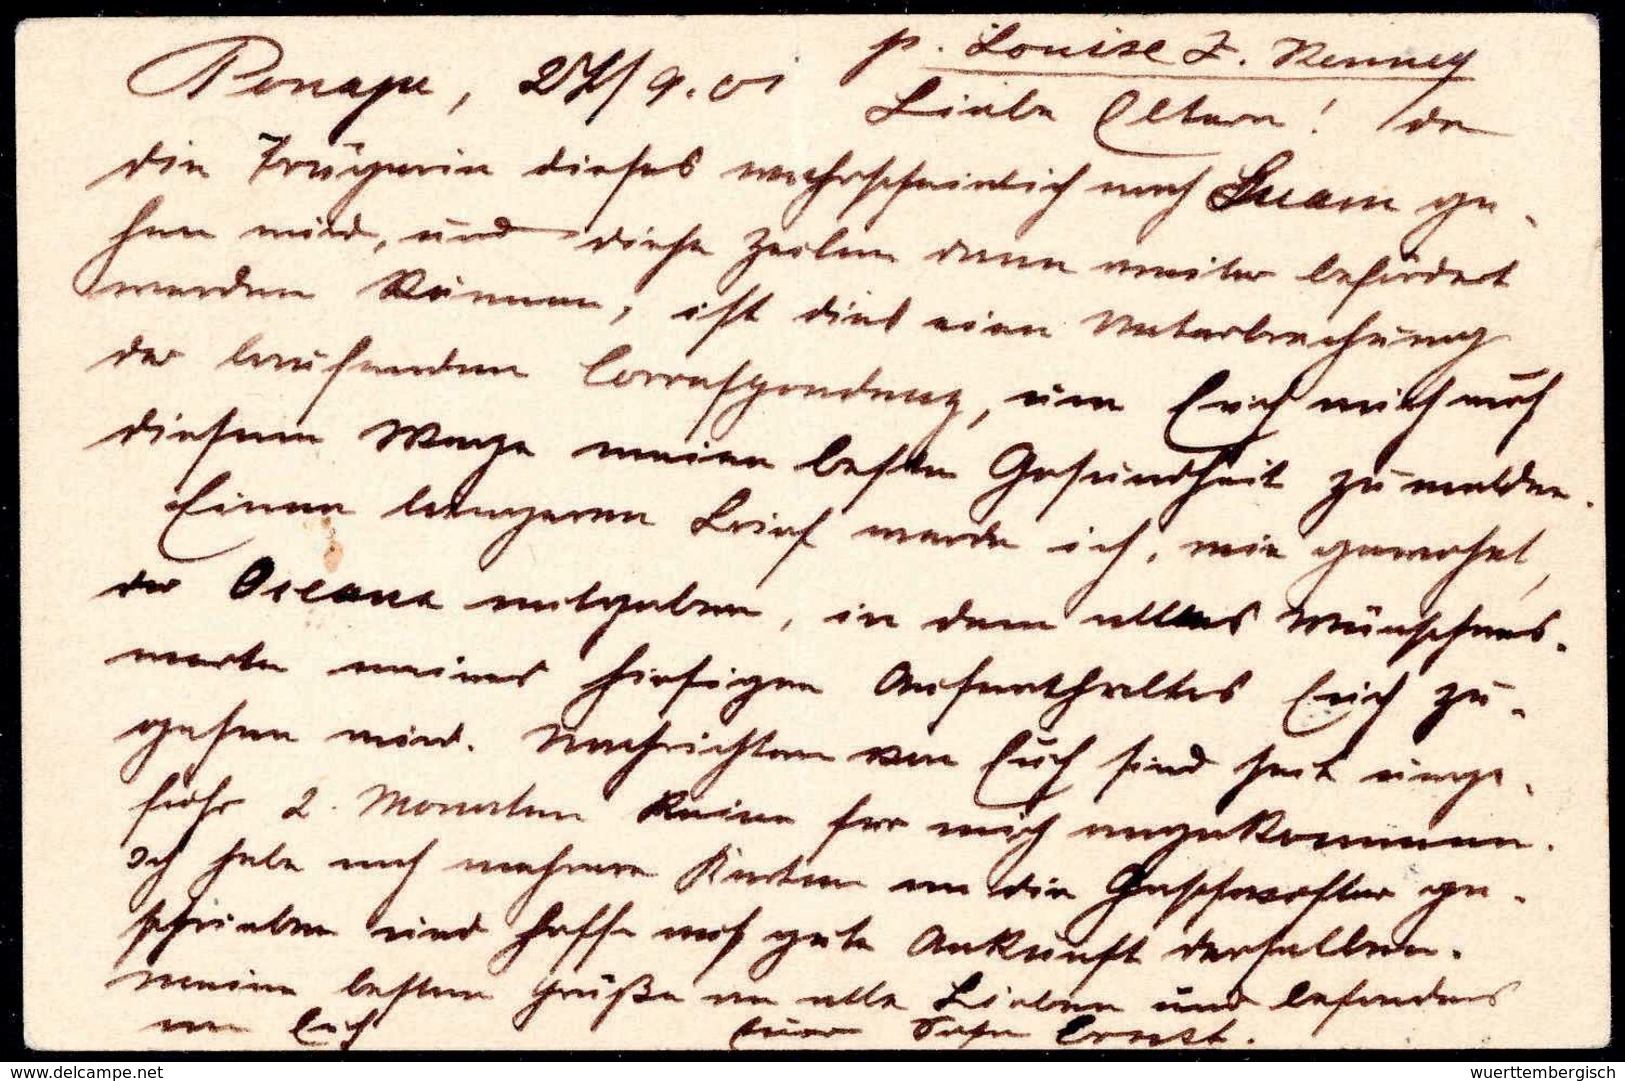 p. Louise J. Kenney
Ponape, 24/9.01 Liebe Eltern! da
die Trägerin dieses wahrscheinlich nach Guam ge-
hen wird, und diese Zeilen dann weiter befördert
werden können, ist dies eine Unterbrechung
der laufenden Correspondenz, um Euch auch auf
diesem Wege meine beste Gesundheit zu melden.
Einen längeren Brief werde ich, wie gewohnt,
der Oceana mitgeben, in dem alles Wünschens-
werte meines hiesigen Aufenthaltes Euch zu-
gehen wird. Nachrichten von Euch sind seit unge-
fähr 2 Monaten keine für mich angekommen.
Ich habe auch mehrere Karten an die Geschwister ge-
schrieben und hoffe auf gute Ankunft derselben.
Meine besten Grüße an alle Lieben und besonders
an Euch Euer Sohn Ernst.
delcampe.net
wuerttembergisch